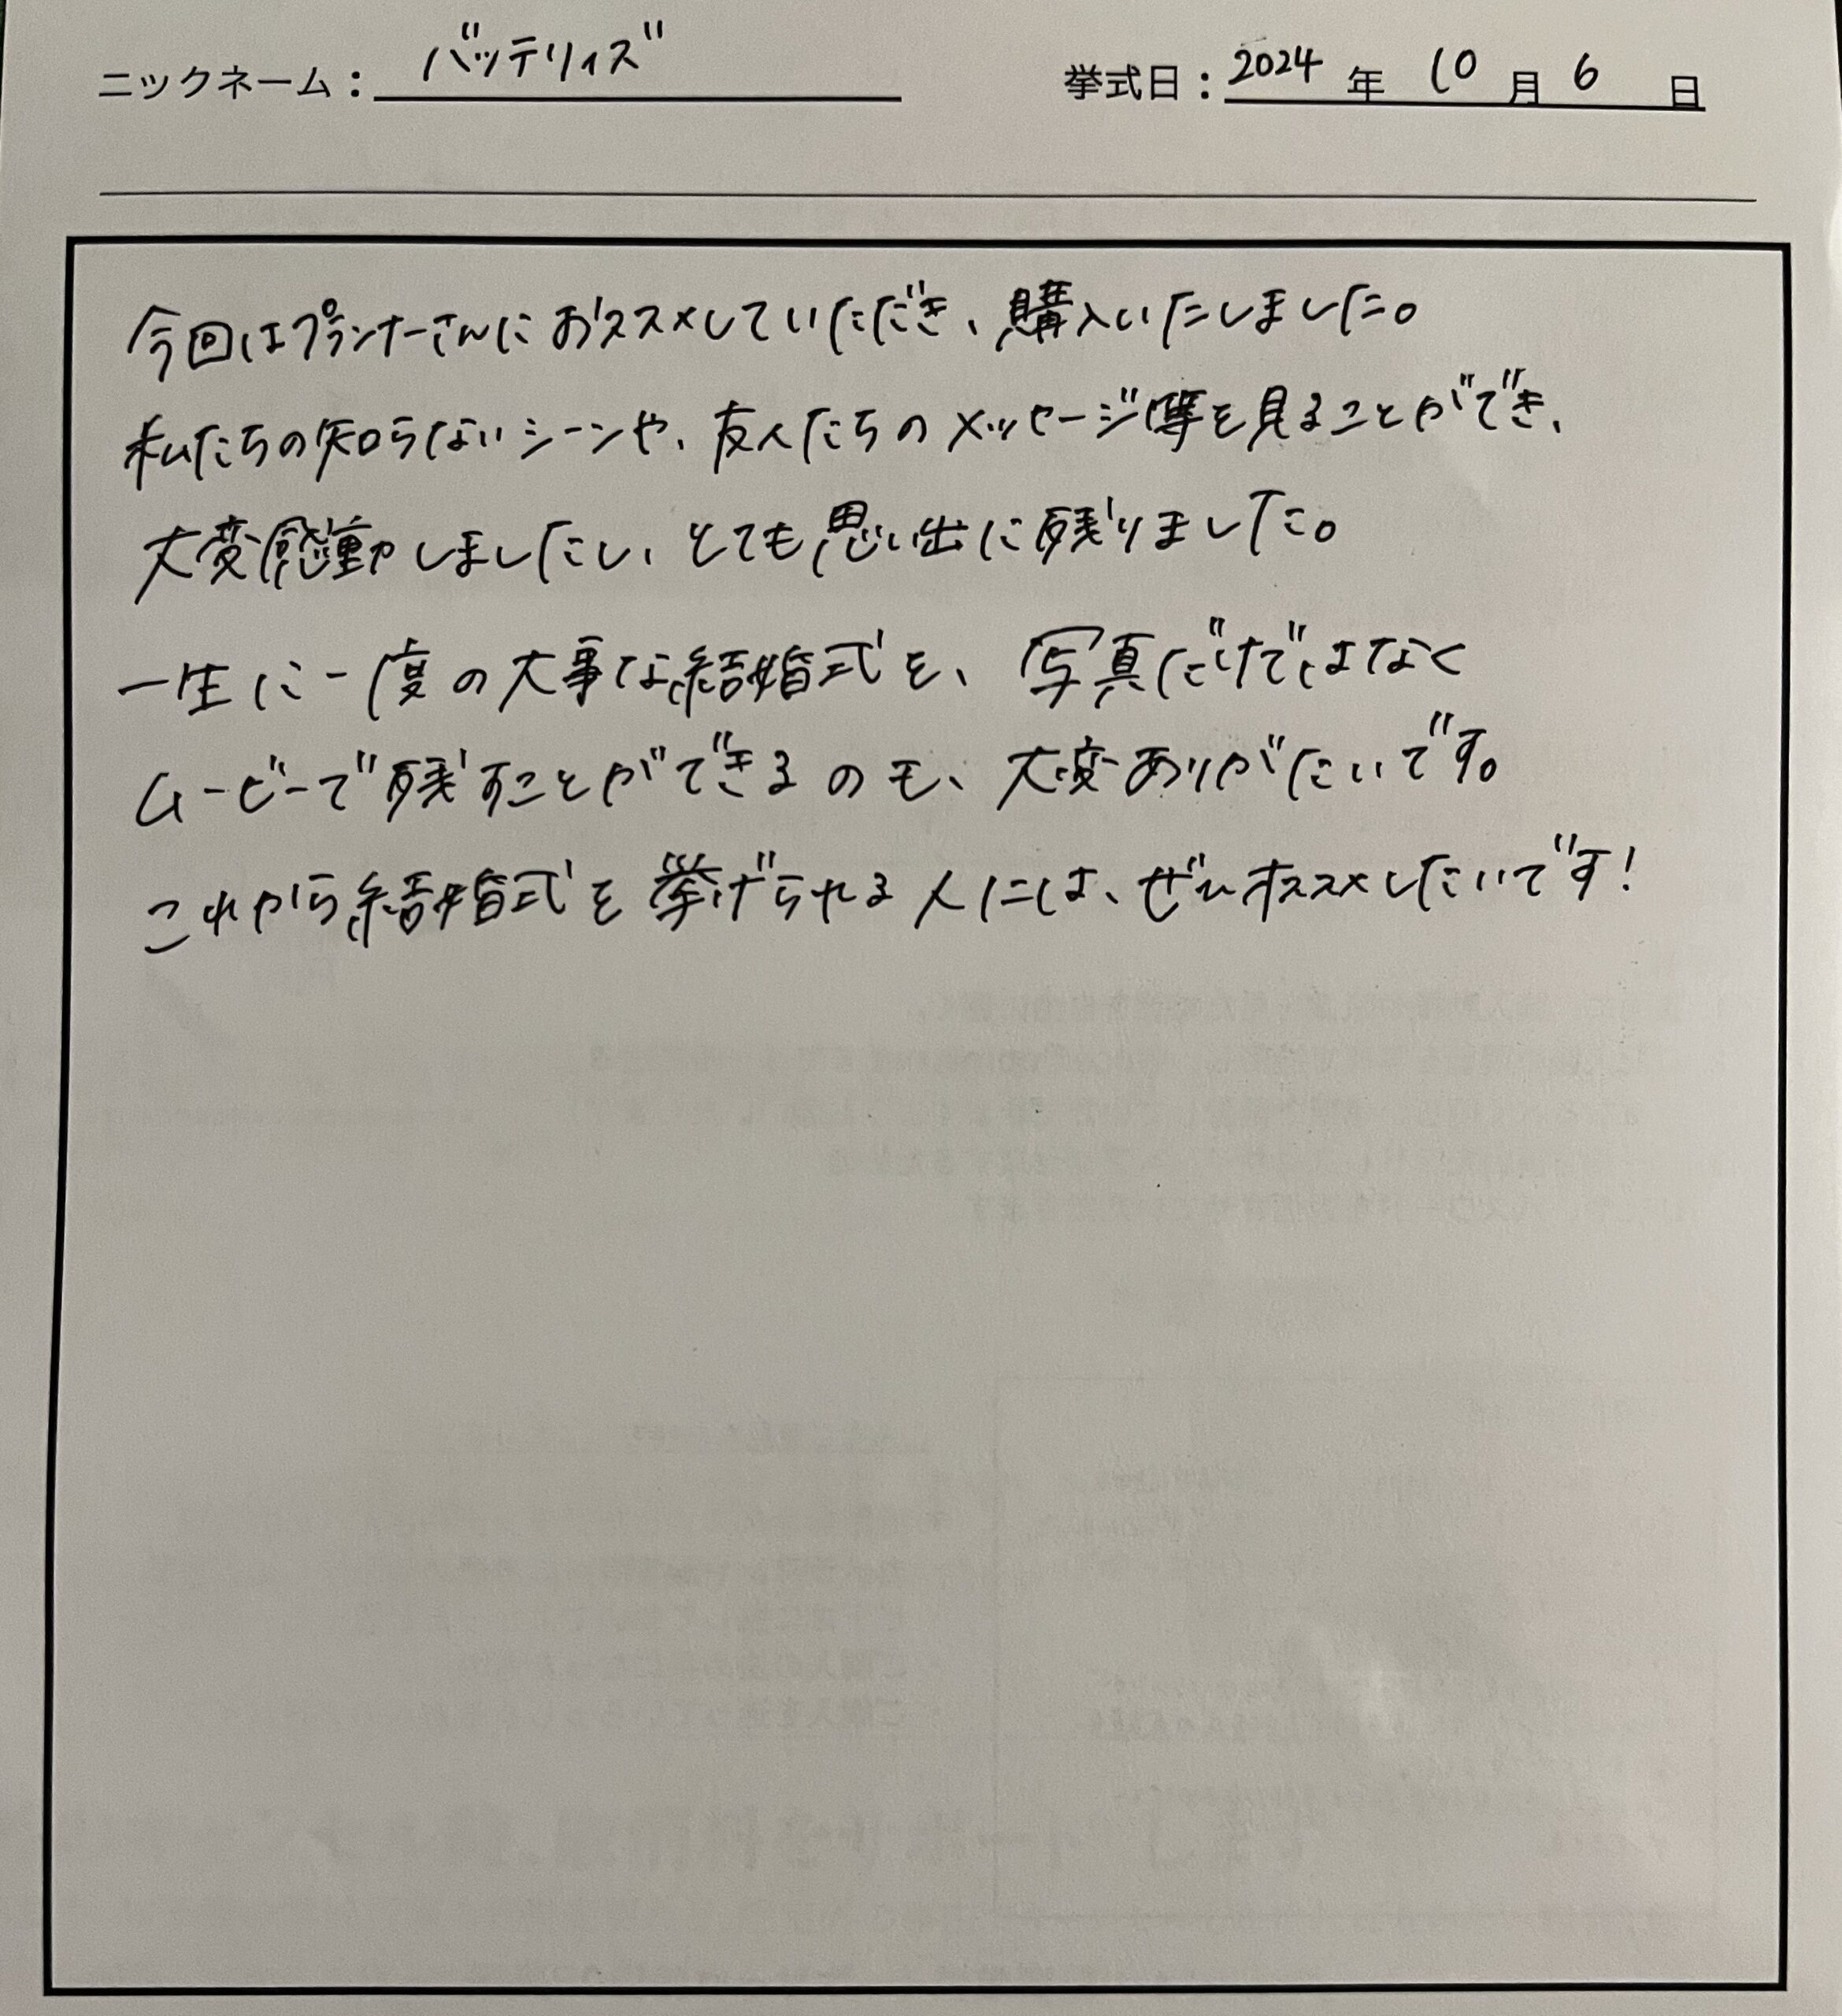 ニックネーム： バッテリィズ 挙式日：2024 年 10 月 6 日
今回はプランナーさんにおススメしていただき、購入いたしました。
私たちの知らないシーンや、友人たちのメッセージ等を見ることができ、
大変感動しましたし、とても思い出に残りました。
一生に一度の大事な結婚式を、写真だけではなく
ムービーで残すことができるのも、大変ありがたいです。
これから結婚式を挙げられる人には、ぜひオススメしたいです！